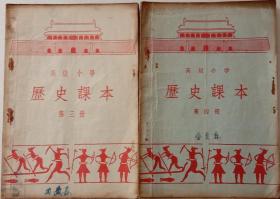 高級小學
歷史課本
第三冊
高級小學
歷史課本
第四冊